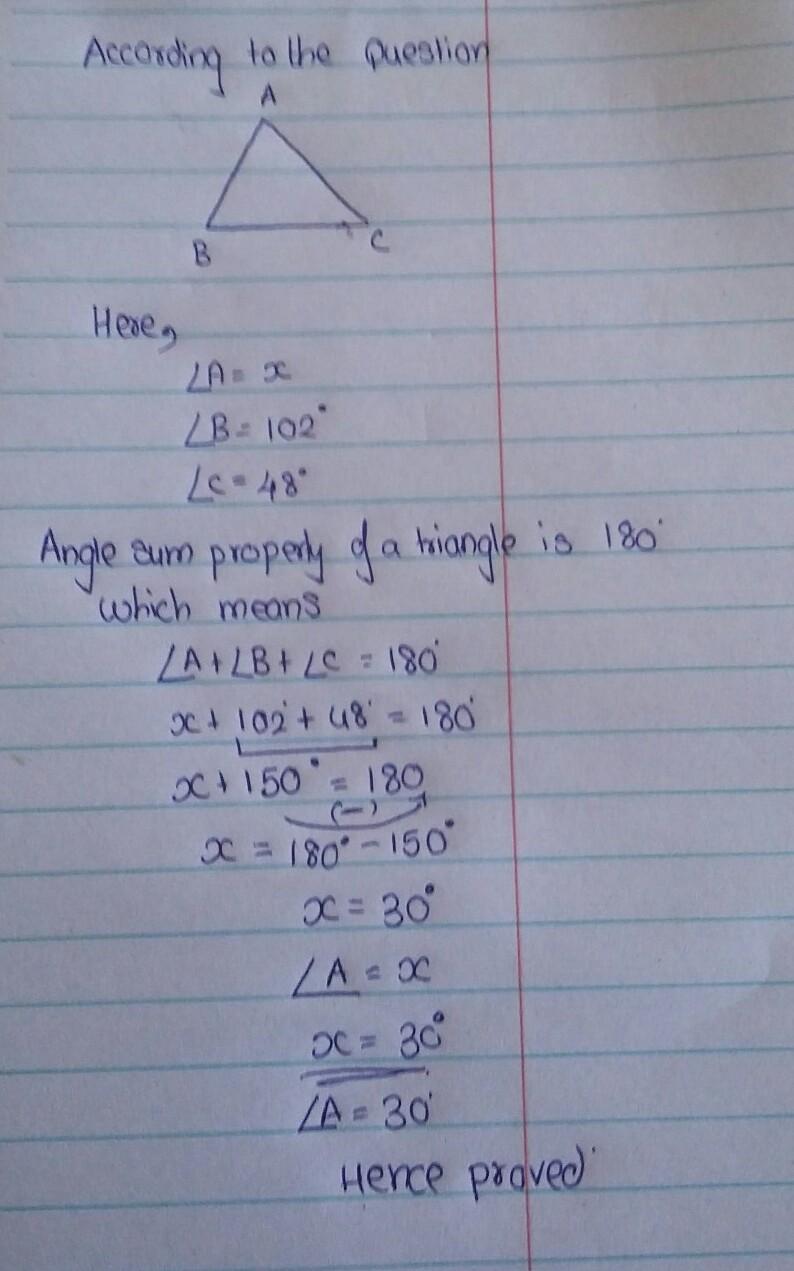 According to the Question
A
B
C
Here,
∠A = x
∠B = 102°
∠C = 48°
Angle sum property of a triangle is 180°
which means
∠A + ∠B + ∠C = 180°
x + 102° + 48° = 180°
x + 150° = 180
(-)
x = 180° - 150°
x = 30°
∠A = x
x = 30°
∠A = 30°
Hence proved.